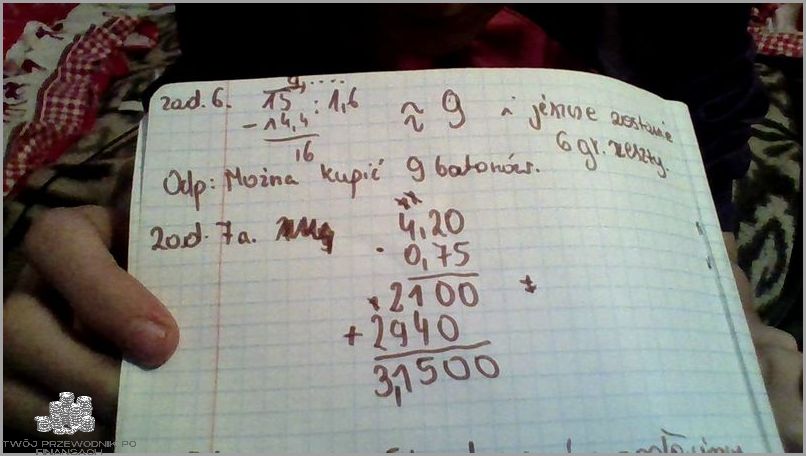 9,....
zad. 6. 15 : 1,6 ≈ 9 i jeszcze zostanie
- 14,4 6 gr. reszty.
16
Odp: Można kupić 9 batonów.
Zad. 7a. 4,20
· 0,75
2100
+ 2940
3,1500
TWÓJ PRZEWODNIK PO
FINANSACH